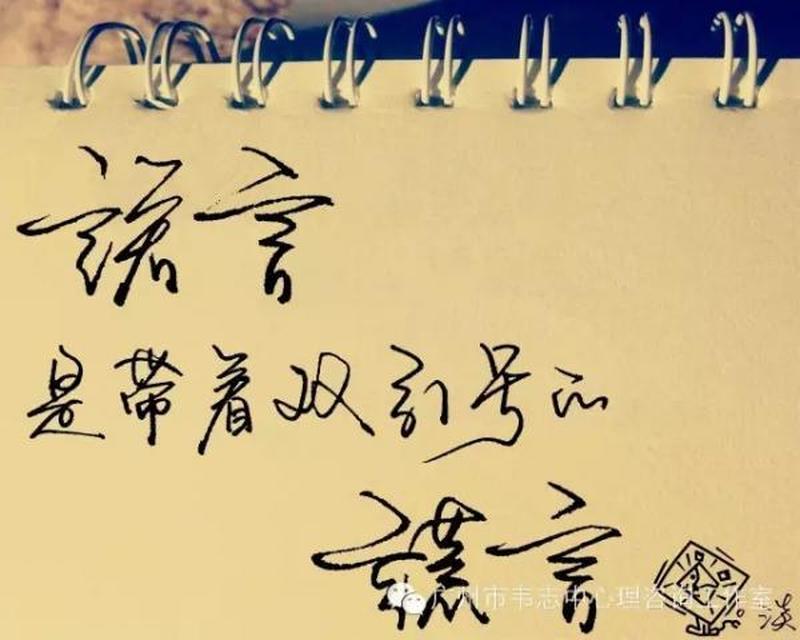 諾言
是带着双引号的
謊言
广州市韦志中心理咨询工作室
淡